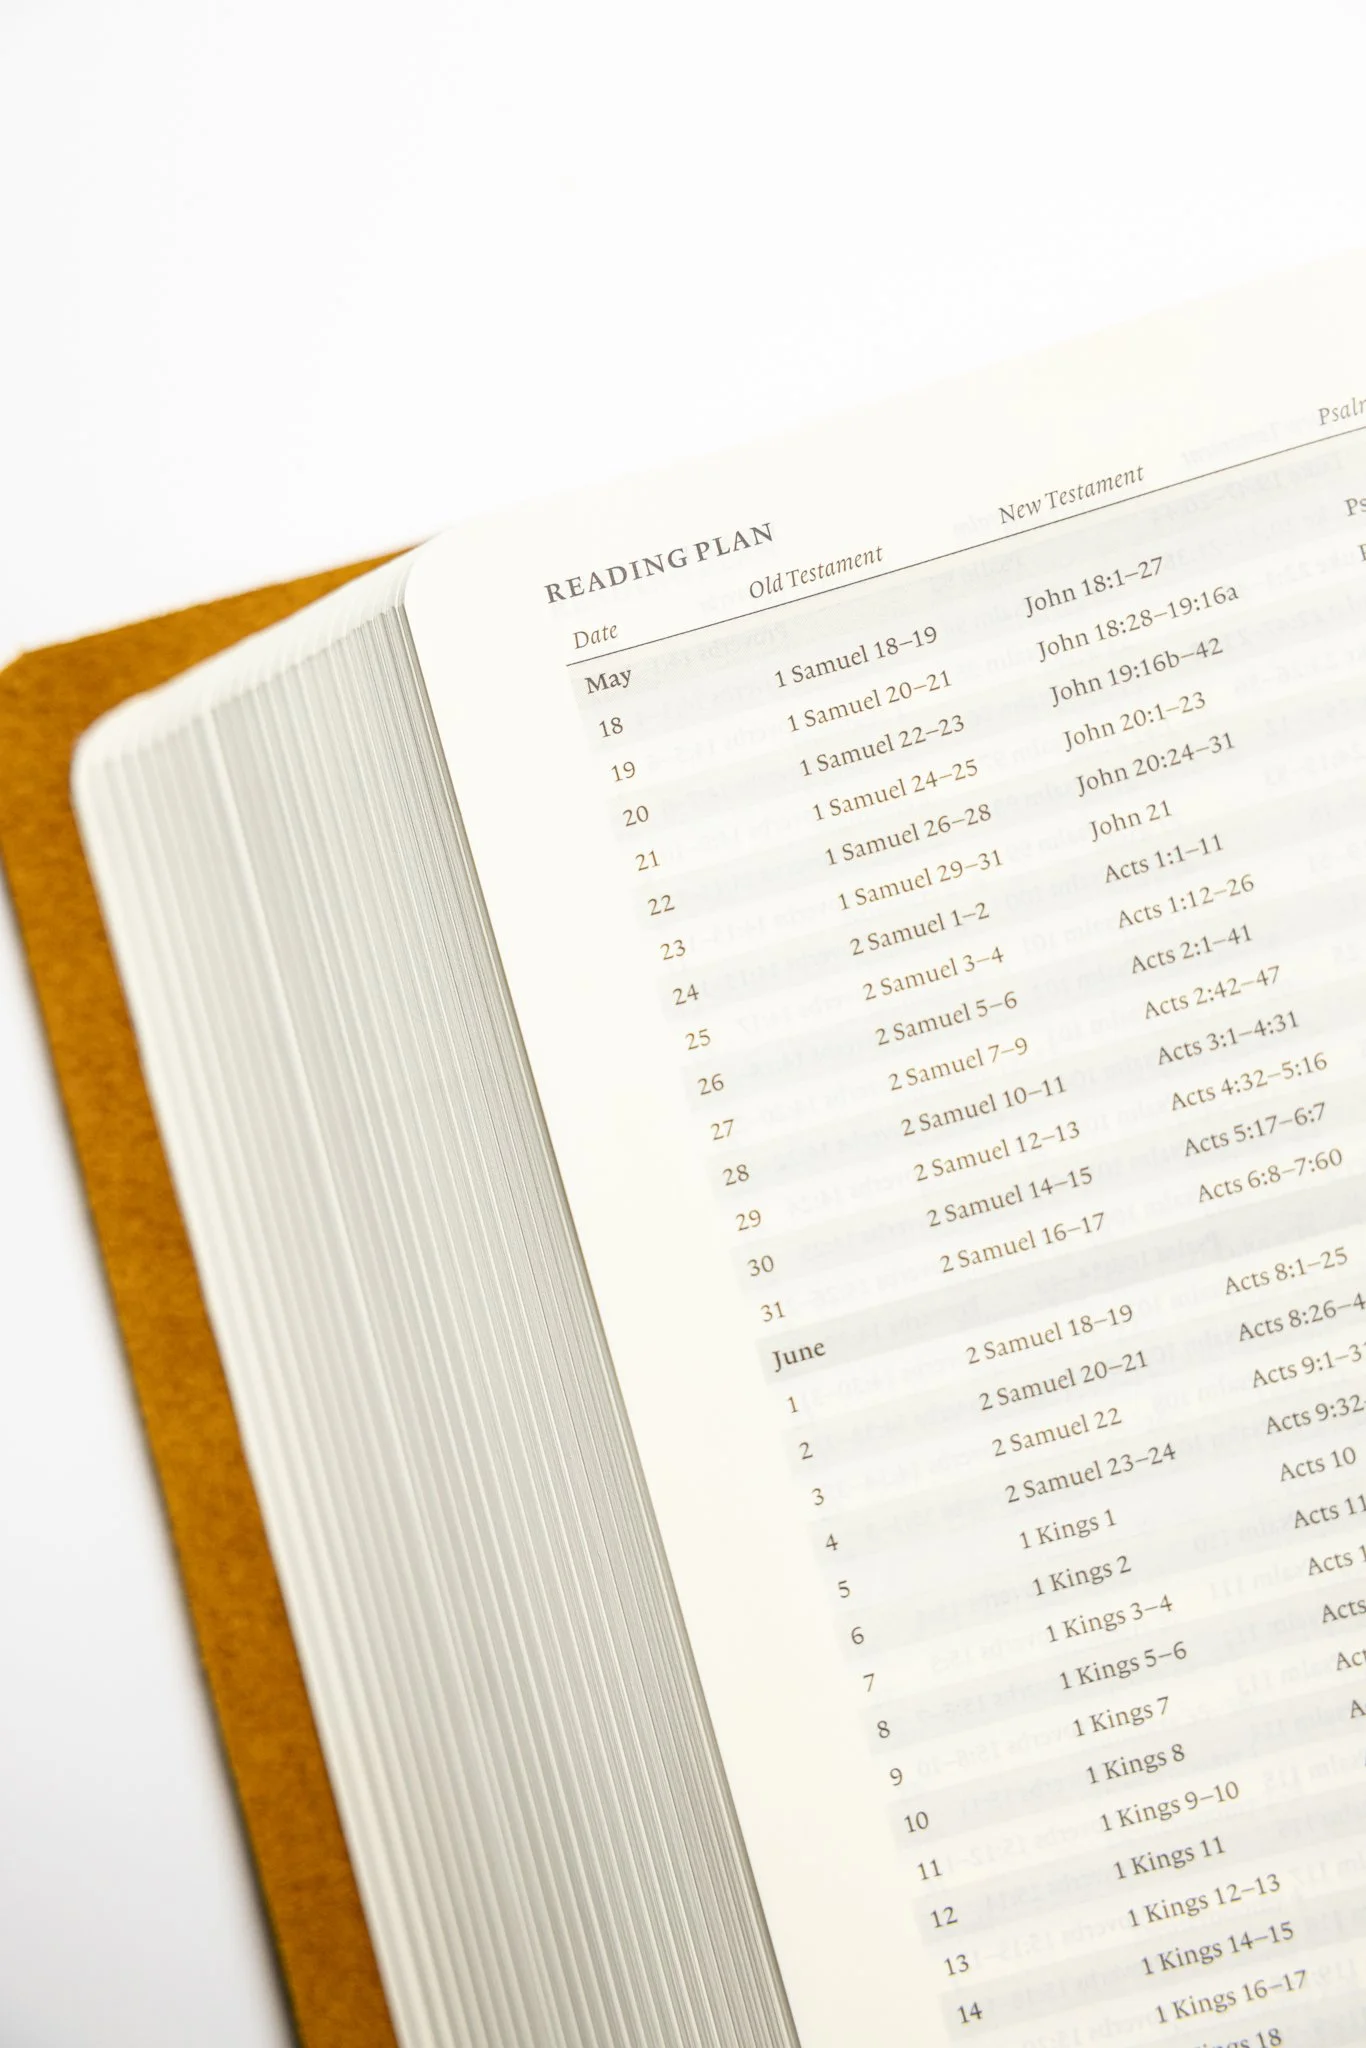 READING PLAN
Date Old Testament New Testament Psal
May
18 1 Samuel 18–19 John 18:1–27 Ps
19 1 Samuel 20–21 John 18:28–19:16a
20 1 Samuel 22–23 John 19:16b–42
21 1 Samuel 24–25 John 20:1–23
22 1 Samuel 26–28 John 20:24–31
23 1 Samuel 29–31 John 21
24 2 Samuel 1–2 Acts 1:1–11
25 2 Samuel 3–4 Acts 1:12–26
26 2 Samuel 5–6 Acts 2:1–41
27 2 Samuel 7–9 Acts 2:42–47
28 2 Samuel 10–11 Acts 3:1–4:31
29 2 Samuel 12–13 Acts 4:32–5:16
30 2 Samuel 14–15 Acts 5:17–6:7
31 2 Samuel 16–17 Acts 6:8–7:60
June
1 2 Samuel 18–19 Acts 8:1–25
2 2 Samuel 20–21 Acts 8:26–4
3 2 Samuel 22 Acts 9:1–31
4 2 Samuel 23–24 Acts 9:32–
5 1 Kings 1 Acts 10
6 1 Kings 2 Acts 11
7 1 Kings 3–4 Acts 1
8 1 Kings 5–6 Acts
9 1 Kings 7 Act
10 1 Kings 8 A
11 1 Kings 9–10
12 1 Kings 11
13 1 Kings 12–13
14 1 Kings 14–15
1 Kings 16–17
ings 18